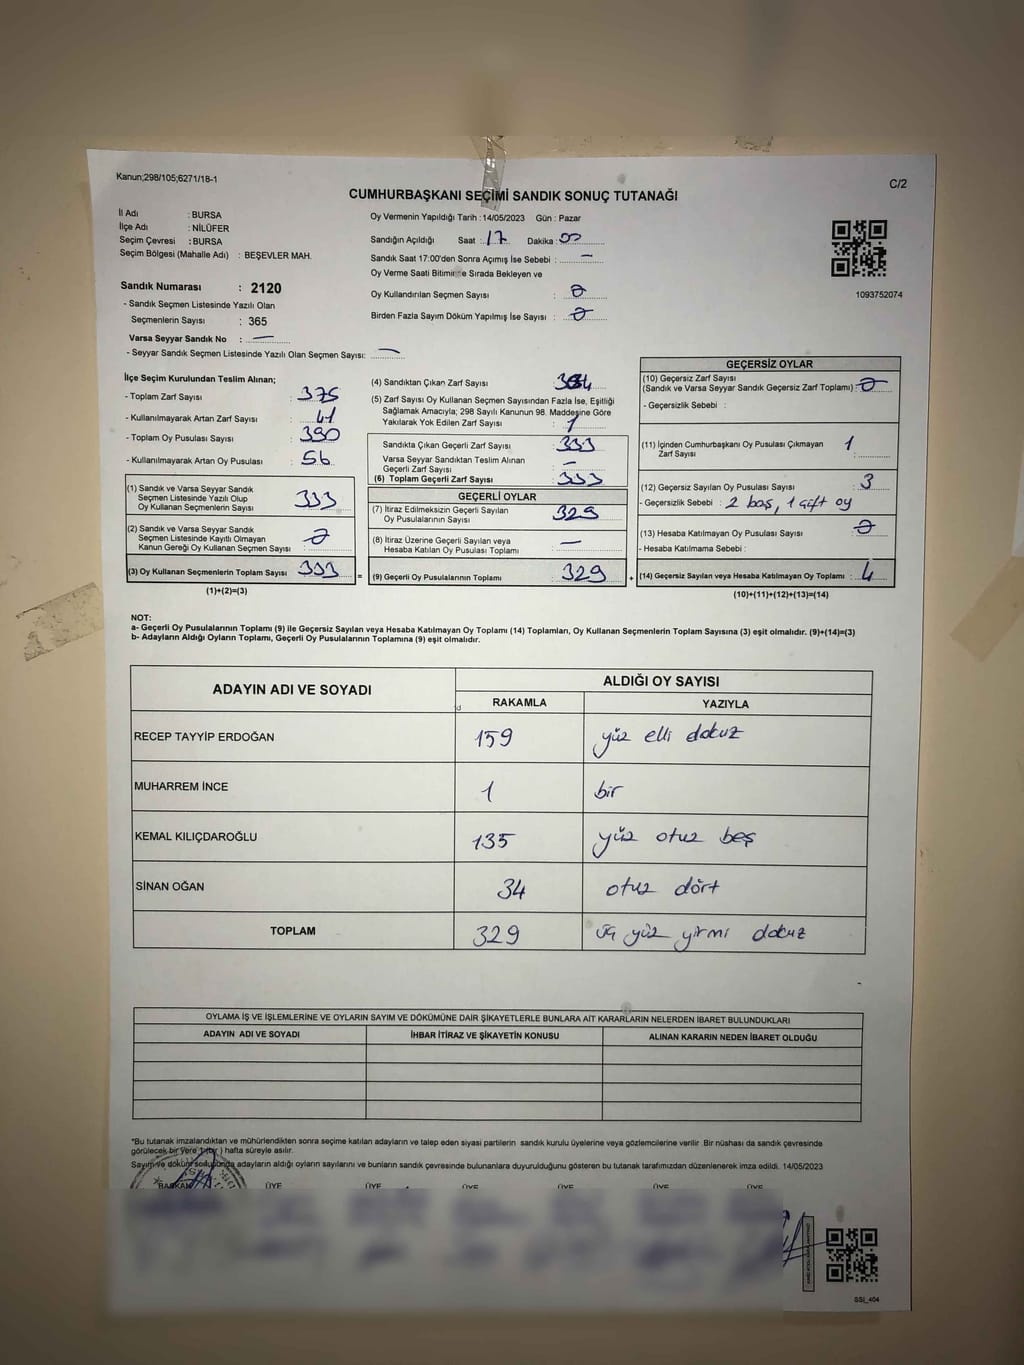 Kanun;298/105;6271/18-1
C/2
CUMHURBAŞKANI SEÇİMİ SANDIK SONUÇ TUTANAĞI
İl Adı : BURSA
İlçe Adı : NİLÜFER
Seçim Çevresi : BURSA
Seçim Bölgesi (Mahalle Adı) : BEŞEVLER MAH.
Oy Vermenin Yapıldığı Tarih : 14/05/2023 Gün : Pazar
Sandığın Açıldığı Saat : 17 Dakika : 00
Sandık Saat 17:00'den Sonra Açımış İse Sebebi : —
Oy Verme Saati Bitiminde Sırada Bekleyen ve
Oy Kullandırılan Seçmen Sayısı : 0
Birden Fazla Sayım Döküm Yapılmış İse Sayısı : 0
1093752074
Sandık Numarası : 2120
- Sandık Seçmen Listesinde Yazılı Olan
Seçmenlerin Sayısı : 365
Varsa Seyyar Sandık No : —
- Seyyar Sandık Seçmen Listesinde Yazılı Olan Seçmen Sayısı: —
İlçe Seçim Kurulundan Teslim Alınan;
- Toplam Zarf Sayısı : 375
- Kullanılmayarak Artan Zarf Sayısı : 41
- Toplam Oy Pusulası Sayısı : 390
- Kullanılmayarak Artan Oy Pusulası : 56
(1) Sandık ve Varsa Seyyar Sandık
Seçmen Listesinde Yazılı Olup
Oy Kullanan Seçmenlerin Sayısı 333
(2) Sandık ve Varsa Seyyar Sandık
Seçmen Listesinde Kayıtlı Olmayan
Kanun Gereği Oy Kullanan Seçmen Sayısı 0
(3) Oy Kullanan Seçmenlerin Toplam Sayısı 333 =
(1)+(2)=(3)
(4) Sandıktan Çıkan Zarf Sayısı 334
(5) Zarf Sayısı Oy Kullanan Seçmen Sayısından Fazla İse, Eşitliği
Sağlamak Amacıyla; 298 Sayılı Kanunun 98. Maddesine Göre
Yakılarak Yok Edilen Zarf Sayısı : 1
Sandıkta Çıkan Geçerli Zarf Sayısı 333
Varsa Seyyar Sandıktan Teslim Alınan
Geçerli Zarf Sayısı : —
(6) Toplam Geçerli Zarf Sayısı : 333
GEÇERLİ OYLAR
(7) İtiraz Edilmeksizin Geçerli Sayılan
Oy Pusulalarının Sayısı 329
(8) İtiraz Üzerine Geçerli Sayılan veya
Hesaba Katılan Oy Pusulası Toplamı —
(9) Geçerli Oy Pusulalarının Toplamı 329 +
GEÇERSİZ OYLAR
(10) Geçersiz Zarf Sayısı
(Sandık ve Varsa Seyyar Sandık Geçersiz Zarf Toplamı) : 0
- Geçersizlik Sebebi :
(11) İçinden Cumhurbaşkanı Oy Pusulası Çıkmayan
Zarf Sayısı : 1
(12) Geçersiz Sayılan Oy Pusulası Sayısı : 3
- Geçersizlik Sebebi : 2 boş, 1 çift oy
(13) Hesaba Katılmayan Oy Pusulası Sayısı : 0
- Hesaba Katılmama Sebebi :
(14) Geçersiz Sayılan veya Hesaba Katılmayan Oy Toplamı : 4
(10)+(11)+(12)+(13)=(14)
NOT:
a- Geçerli Oy Pusulalarının Toplamı (9) ile Geçersiz Sayılan veya Hesaba Katılmayan Oy Toplamı (14) Toplamları, Oy Kullanan Seçmenlerin Toplam Sayısına (3) eşit olmalıdır. (9)+(14)=(3)
b- Adayların Aldığı Oyların Toplamı, Geçerli Oy Pusulalarının Toplamına (9) eşit olmalıdır.
ADAYIN ADI VE SOYADI
ALDIĞI OY SAYISI
RAKAMLA YAZIYLA
RECEP TAYYİP ERDOĞAN 159 yüz elli dokuz
MUHARREM İNCE 1 bir
KEMAL KILIÇDAROĞLU 135 yüz otuz beş
SİNAN OĞAN 34 otuz dört
TOPLAM 329 üç yüz yirmi dokuz
OYLAMA İŞ VE İŞLEMLERİNE VE OYLARIN SAYIM VE DÖKÜMÜNE DAİR ŞİKAYETLERLE BUNLARA AİT KARARLARIN NELERDEN İBARET BULUNDUKLARI
ADAYIN ADI VE SOYADI İHBAR İTİRAZ VE ŞİKAYETİN KONUSU ALINAN KARARIN NEDEN İBARET OLDUĞU
*Bu tutanak imzalandıktan ve mühürlendikten sonra seçime katılan adayların ve talep eden siyasi partilerin sandık kurulu üyelerine veya gözlemcilerine verilir. Bir nüshası da sandık çevresinde
görülecek bir yere 1 (bir) hafta süreyle asılır.
Sayım ve döküm sonucunda adayların aldığı oyların sayılarını ve bunların sandık çevresinde bulunanlara duyurulduğunu gösteren bu tutanak tarafımızdan düzenlenerek imza edildi. 14/05/2023
BAŞKAN ÜYE ÜYE ÜYE ÜYE ÜYE ÜYE
SSİ_404